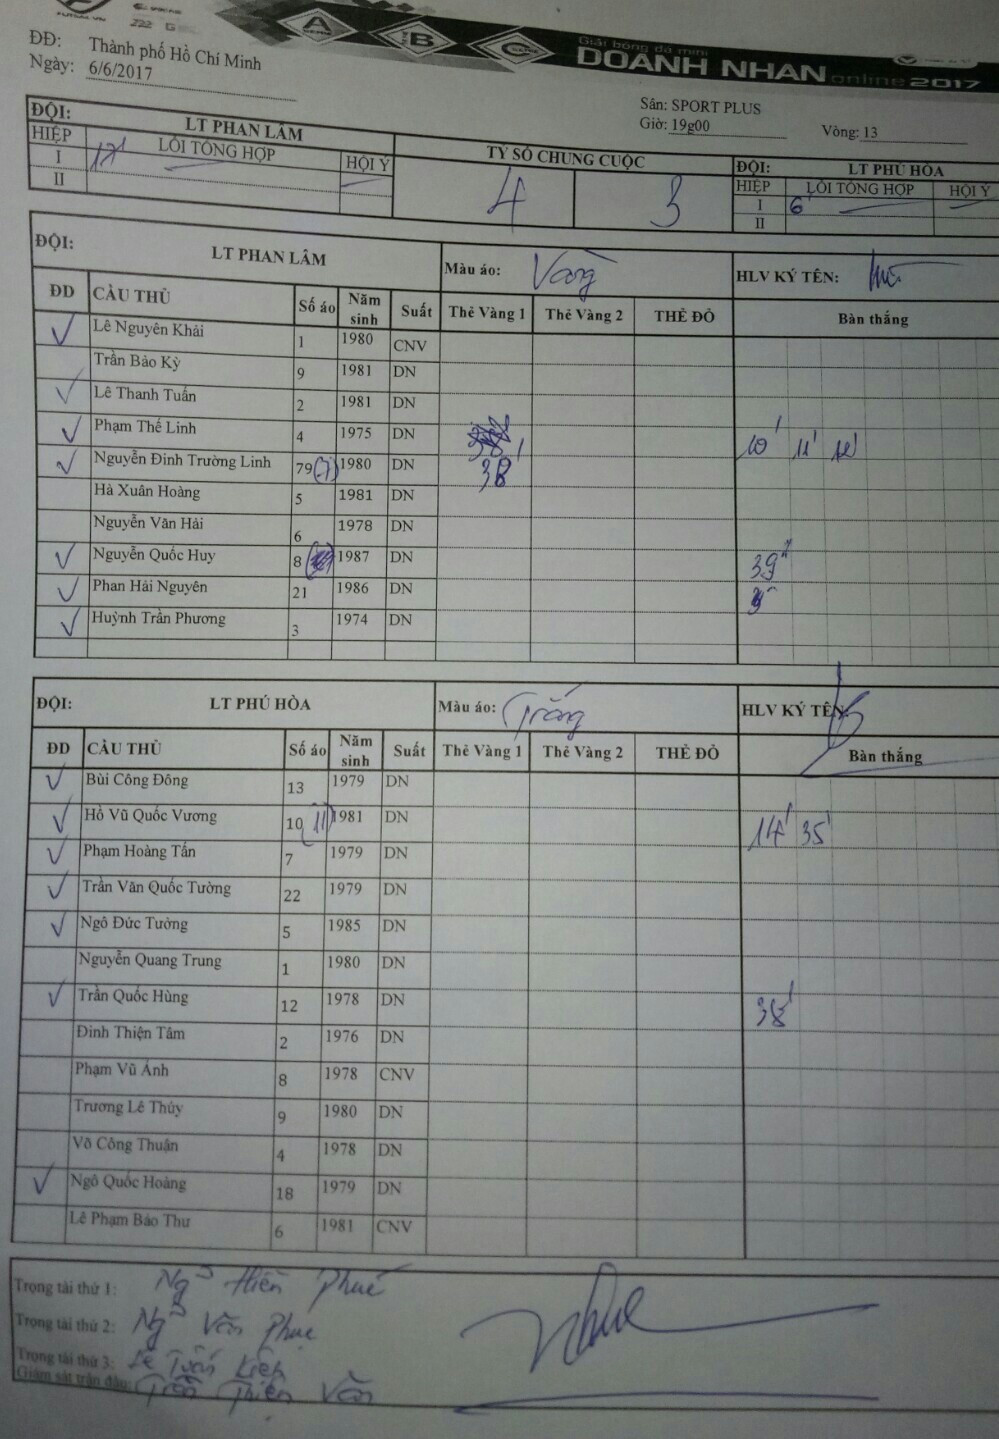 FUTSAL VN
A
B
C
Giải bóng đá mini
DOANH NHAN online 2017
ĐĐ: Thành phố Hồ Chí Minh
Ngày: 6/6/2017
Sân: SPORT PLUS
Giờ: 19g00 Vòng: 13
ĐỘI: LT PHAN LÂM TỶ SỐ CHUNG CUỘC ĐỘI: LT PHÚ HÒA
HIỆP LỖI TỔNG HỢP HỘI Ý 4 3 HIỆP LỖI TỔNG HỢP HỘI Ý
I I 6'
II II
ĐỘI: LT PHAN LÂM Màu áo: Vàng HLV KÝ TÊN:
ĐD CẦU THỦ Số áo Năm sinh Suất Thẻ Vàng 1 Thẻ Vàng 2 THẺ ĐỎ Bàn thắng
Lê Nguyên Khải 1 1980 CNV
Trần Bảo Kỳ 9 1981 DN
Lê Thanh Tuấn 2 1981 DN
Phạm Thế Linh 4 1975 DN 10' 11' 12'
Nguyễn Đình Trường Linh 79 (7) 1980 DN 38'
Hà Xuân Hoàng 5 1981 DN
Nguyễn Văn Hải 6 1978 DN
Nguyễn Quốc Huy 8 1987 DN 39'
Phan Hải Nguyên 21 1986 DN
Huỳnh Trần Phương 3 1974 DN
ĐỘI: LT PHÚ HÒA Màu áo: Trắng HLV KÝ TÊN:
ĐD CẦU THỦ Số áo Năm sinh Suất Thẻ Vàng 1 Thẻ Vàng 2 THẺ ĐỎ Bàn thắng
Bùi Công Đông 13 1979 DN
Hồ Vũ Quốc Vương 10 (11) 1981 DN 14' 35'
Phạm Hoàng Tấn 7 1979 DN
Trần Văn Quốc Tường 22 1979 DN
Ngô Đức Tưởng 5 1985 DN
Nguyễn Quang Trung 1 1980 DN
Trần Quốc Hùng 12 1978 DN 38'
Đinh Thiện Tâm 2 1976 DN
Phạm Vũ Ánh 8 1978 CNV
Trương Lê Thủy 9 1980 DN
Võ Công Thuận 4 1978 DN
Ngô Quốc Hoàng 18 1979 DN
Lê Phạm Bảo Thư 6 1981 CNV
Trọng tài thứ 1: Ngỗ Hiền Phúc
Trọng tài thứ 2: Ng Văn Phúc
Trọng tài thứ 3: Lê Tuấn Kiệp
Giám sát trận đấu: Trần Thiện Văn